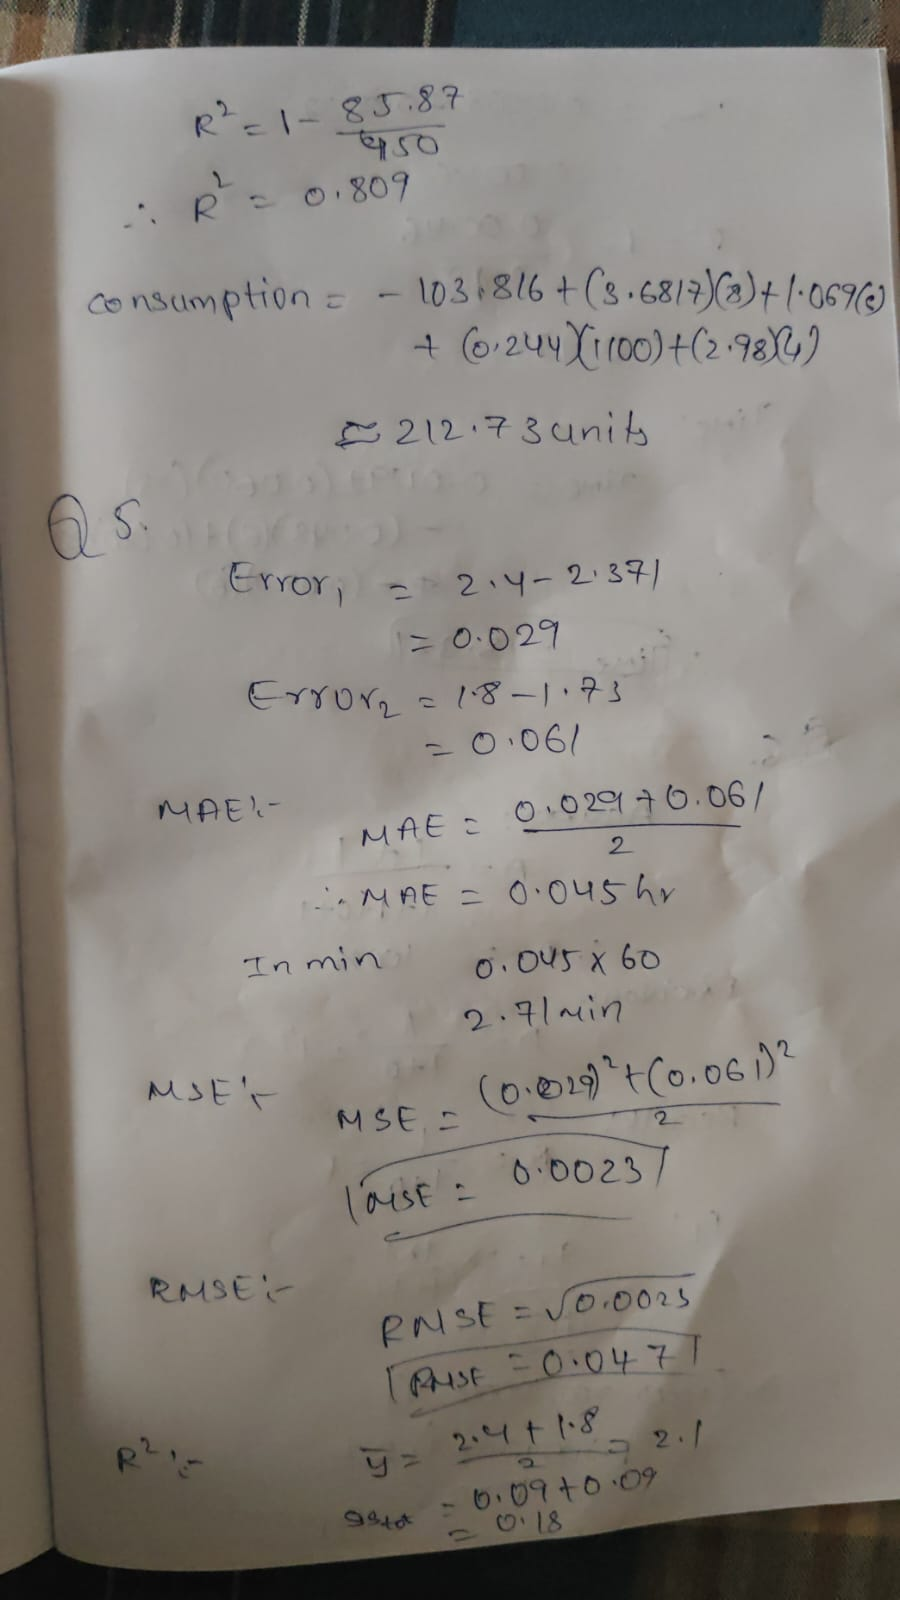 R² = 1 - 85.87
450
∴ R² = 0.809
consumption = - 103.816 + (3.6817)(8) + 1.069(6)
+ (0.244)(1100) + (2.98)(4)
≈ 212.73 units
Q 5.
Error₁ = 2.4 - 2.371
= 0.029
Error₂ = 1.8 - 1.73
= 0.061
MAE :-
MAE = 0.029 + 0.061
2
∴ MAE = 0.045 hr
In min 0.045 x 60
2.71 min
MSE :-
MSE = (0.029)² + (0.061)²
2
MSE = 0.0023
RMSE :-
RMSE = √0.0023
RMSE = 0.047
R² :- ȳ = 2.4 + 1.8 = 2.1
2
SStot = 0.09 + 0.09
= 0.18